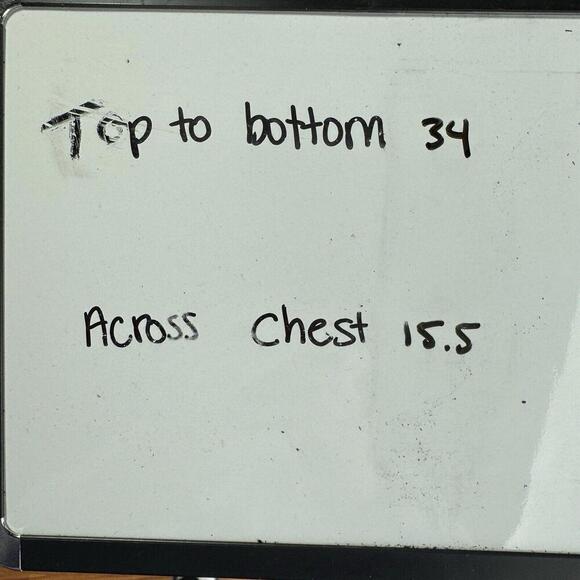 Top to bottom 34
Across Chest 15.5